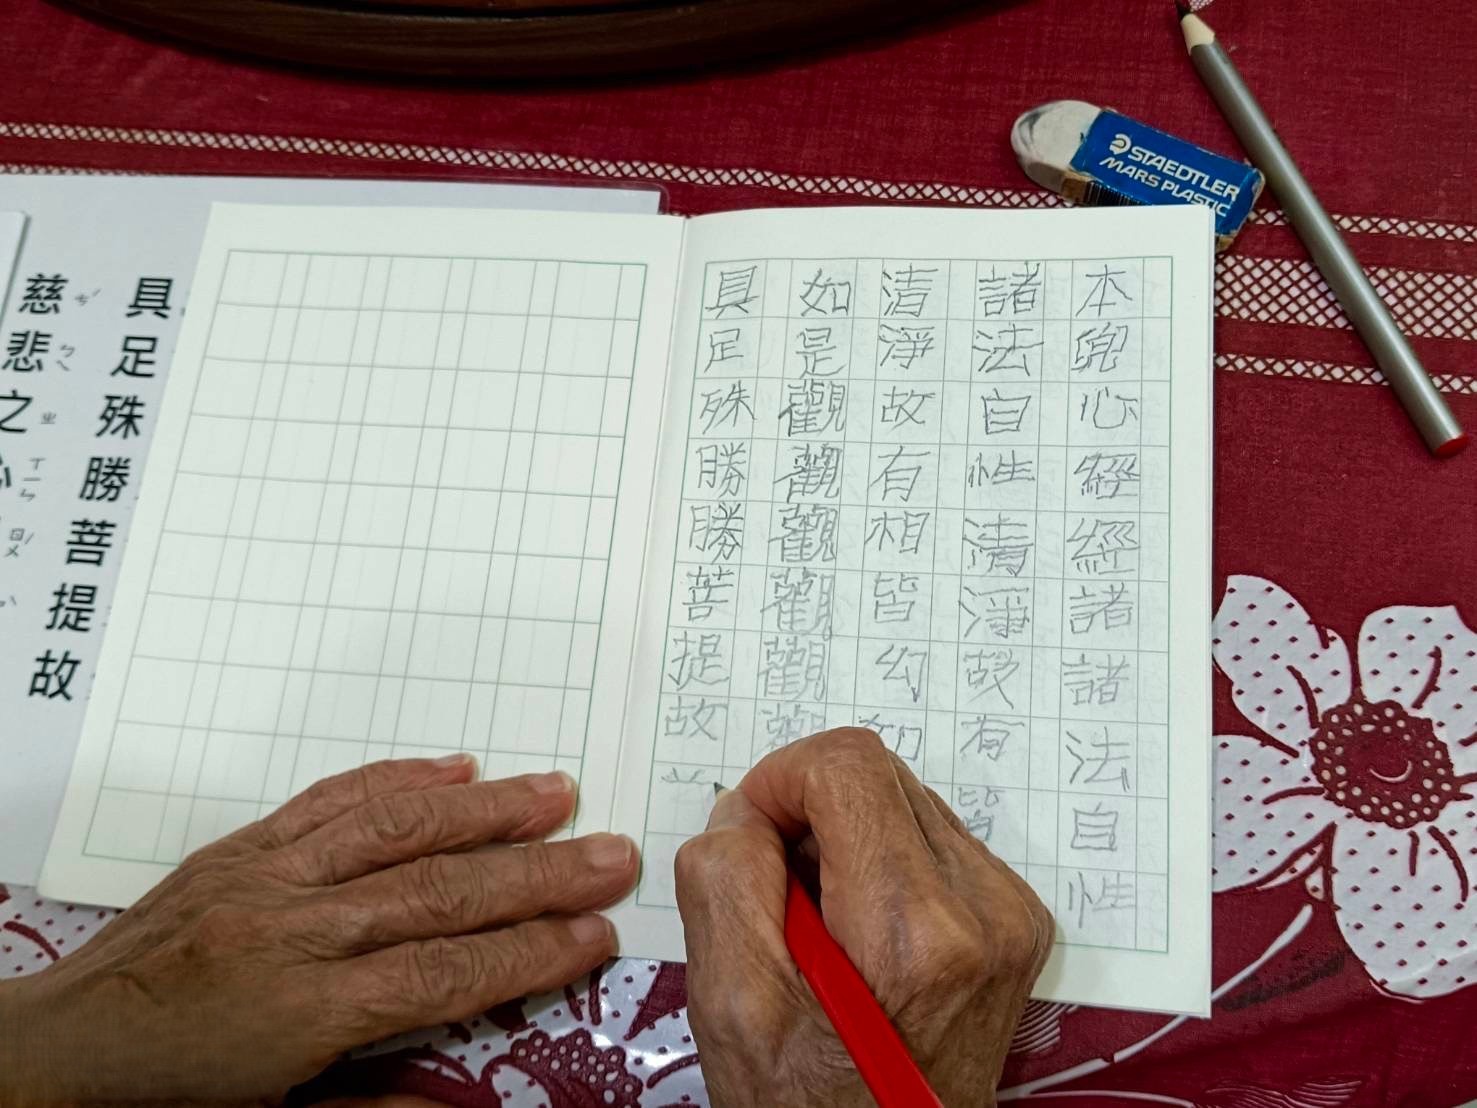 本兜心經經諸諸法自性
諸法自性清淨故有皆
清淨故有相皆幻如
如是觀觀觀觀觀觀
具足殊勝勝菩提故
具足殊勝菩提故
慈悲之心
ㄘˊ
ㄅㄟ
ㄓ
ㄒㄧㄣ
ㄖㄨˊ
STAEDTLER
MARS PLASTIC